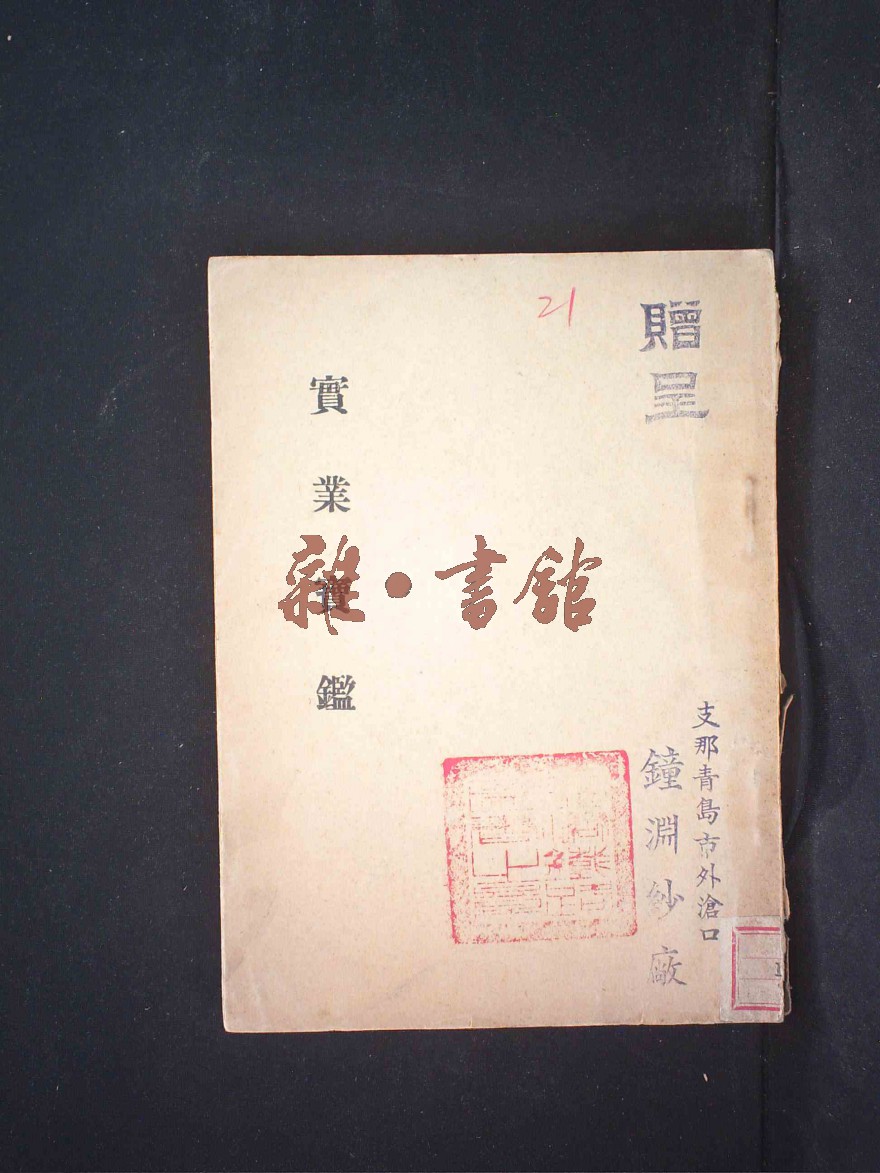 贈呈
支那青島市外滄口
鐘淵紗廠
21
實業寶鑑
雜·書館
1